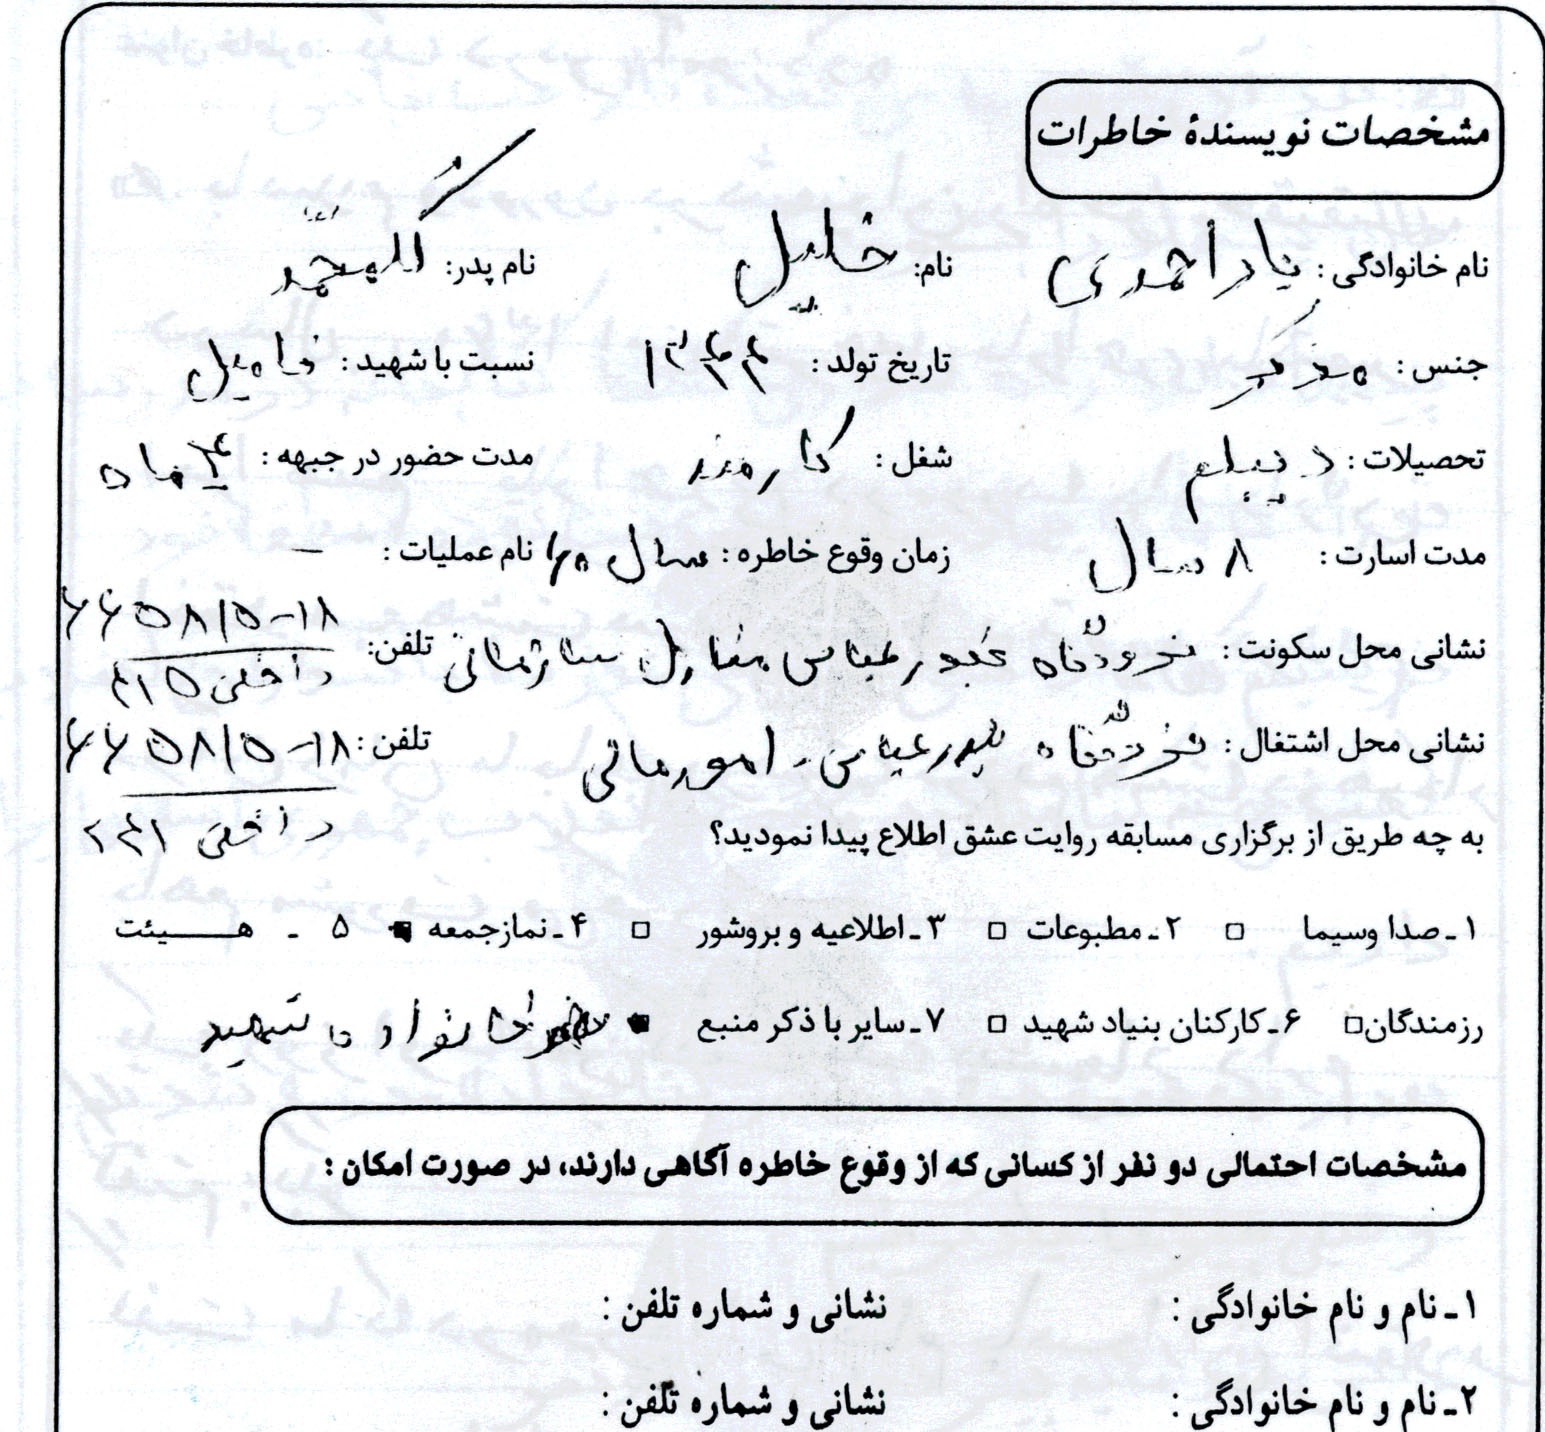 مشخصات نویسندهٔ خاطرات
نام خانوادگی: یاراحمدی نام: خلیل نام پدر: گلمحمد
جنس: مذکر تاریخ تولد: ۱۳۴۴ نسبت با شهید: فامیل
تحصیلات: دیپلم شغل: کارمند مدت حضور در جبهه: ۴ ماه
مدت اسارت: ۸ سال زمان وقوع خاطره: سال ۶۰ نام عملیات: –
نشانی محل سکونت: فرودگاه بندرعباس منازل سازمانی تلفن: ۶۶۵۸۱۵-۱۸
داخلی ۴۱۵
نشانی محل اشتغال: فرودگاه بندرعباس - امور مالی تلفن: ۶۶۵۸۱۵-۱۸
داخلی ۲۴۱
به چه طریق از برگزاری مسابقه روایت عشق اطلاع پیدا نمودید؟
۱ـ صدا وسیما □ ۲ـ مطبوعات □ ۳ـ اطلاعیه و بروشور □ ۴ـ نمازجمعه ■ ۵ ـ هـــیئت
رزمندگان □ ۶ـ کارکنان بنیاد شهید □ ۷ـ سایر با ذکر منبع ■ خانواده شهید
مشخصات احتمالی دو نفر از کسانی که از وقوع خاطره آگاهی دارند، در صورت امکان :
۱ـ نام و نام خانوادگی : نشانی و شماره تلفن :
۲ـ نام و نام خانوادگی : نشانی و شماره تلفن :